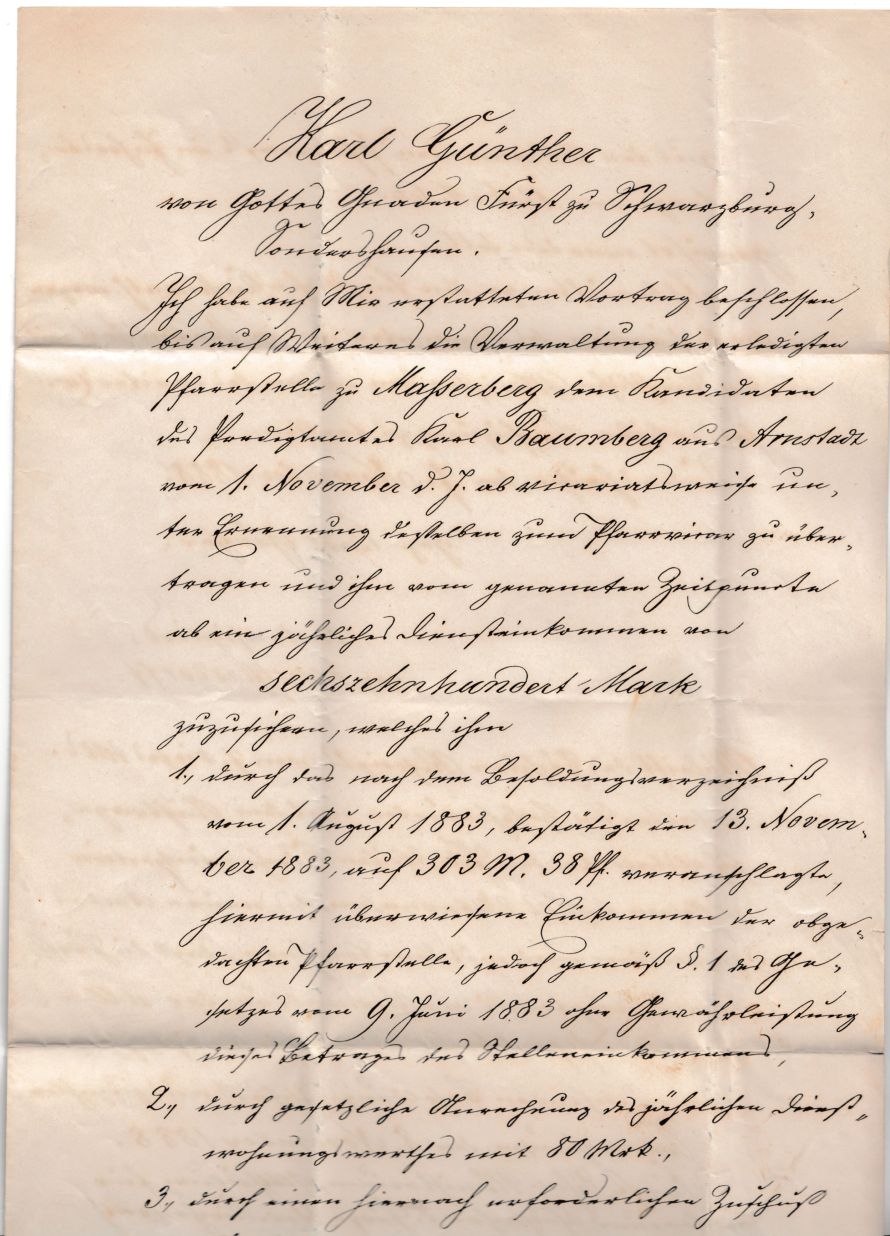 Karl Günther
von Gottes Gnaden Fürst zu Schwarzburg-
Sondershausen.
Ich habe auf Mir erstatteten Vortrag beschlossen,
bis auf Weiteres die Verwaltung der erledigten
Pfarrstelle zu Masserberg dem Kandidaten
des Predigtamtes Karl Baumberg aus Arnstadt
vom 1. November d. J. ab vicariatsweise un-
ter Ernennung desselben zum Pfarrvicar zu über-
tragen und ihm vom genannten Zeitpuncte
ab ein jährliches Diensteinkommen von
sechszehnhundert Mark
zuzusichern, welches ihm
1., durch das nach dem Besoldungsverzeichniß
vom 1. August 1883, bestätigt den 13. Novem-
ber 1883, auf 303 M. 38 Pf. veranschlagte,
hiermit überwiesene Einkommen der obge-
dachten Pfarrstelle, jedoch gemäß §. 1 des Ge-
setzes vom 9. Juni 1883 ohne Gewährleistung
dieses Betrages des Stelleneinkommens,
2., durch gesetzliche Anrechnung des jährlichen Dienst-
wohnungswerthes mit 80 Mrk.,
3., durch einen hiernach erforderlichen Zuschuß